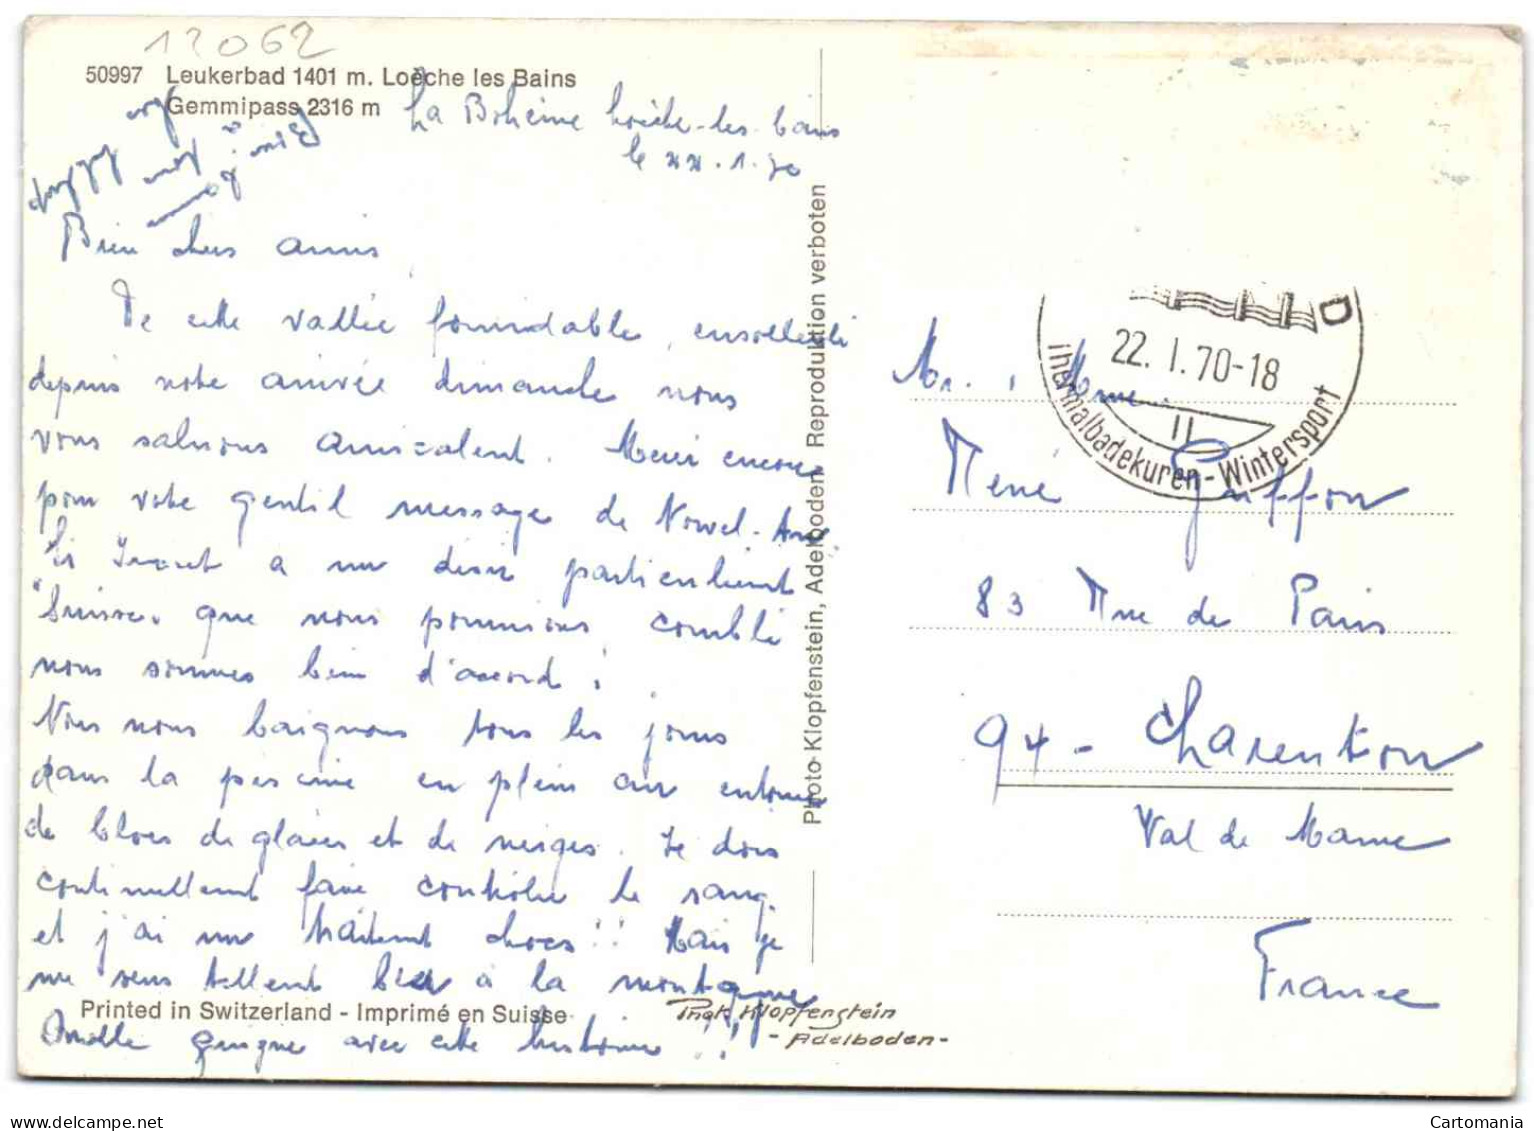 12062
50997 Leukerbad 1401 m. Loèche les Bains
Gemmipass 2316 m
La Bohème Loèche-les-bains
le 22.1.70
Bien chers amis,
De cette vallée formidable, ensoleillée
depuis notre arrivée dimanche nous
vous saluons amicalement. Merci encore
pour votre gentil message de Nouvel-An.
Si a un désir particulièrement
"Suisse" que nous pourrions combler
nous sommes bien d'accord!
Nous nous baignons tous les jours
dans la piscine en plein air entourée
de blocs de glaces et de neiges. Je dois
continuellement faire contrôler le sang
et j'ai un traitement choc!! Mais je
me sens tellement bien à la montagne
Quelle guigne avec cette histoire!!
Printed in Switzerland - Imprimé en Suisse
Phot. Klopfenstein
- Adelboden -
Photo Klopfenstein, Adelboden Reproduktion verboten
D
22. I. 70-18
Thermalbadekuren - Wintersport
Mr., Mme.
René Guffon
83 Rue de Paris
94 - Charenton
Val de Marne
France
Cartomania